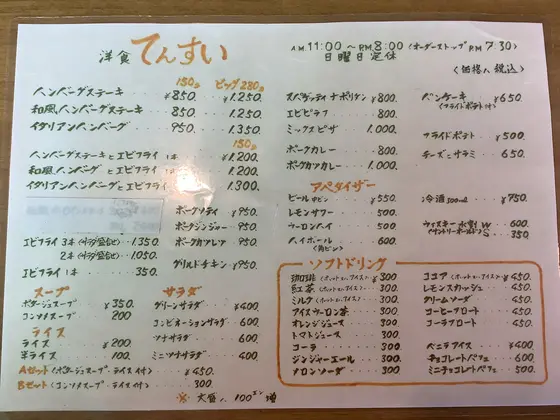 洋食 てんすい
A.M. 11:00 〜 P.M. 8:00 (オーダーストップ P.M. 7:30)
日曜日定休
〈価格ハ税込〉
150g ビッグ280g
ハンバーグステーキ ¥850. ¥1.250.
和風ハンバーグステーキ 850. 1.250.
イタリアンハンバーグ 950. 1.350.
150g
ハンバーグステーキとエビフライ1本 ¥1.200.
和風ハンバーグとエビフライ1本 1.200.
イタリアンハンバーグとエビフライ1本 1.300.
エビフライ 3本 1.350.
2本 1.050.
エビフライ 1本 350.
ポークソティ ¥950.
ポークジンジャー ¥950.
ポークカツレツ ¥950.
グリルドチキン ¥950.
スープ
ポタージュスープ ¥350.
コンソメスープ 200
ライス
ライス ¥200
半ライス 100.
Aセット〈ポタージュスープ・ライス付〉 ¥450.
Bセット〈コンソメスープ・ライス付〉 300.
サラダ
グリーンサラダ ¥400
コンビネーションサラダ 600
ツナサラダ 600.
ミニツナサラダ 400.
※ 大盛ハ 100エン増
スパゲッティナポリタン ¥800.
エビピラフ 800.
ミックスピザ 1.000
ポークカレー 800.
ポークカツカレー 1.000.
パンケーキ ¥650.
(フライドポテト付)
フライドポテト ¥500
チーズとサラミ 650.
アペタイザー
ビール 中ビン ¥550
レモンサワー 500.
ウーロンハイ 500.
ハイボール 600.
(角ビン)
冷酒300ml ¥750.
ウィスキー水割 W 600
(サントリーオールド) S 350.
ソフトドリンク
珈琲(ホットorアイス) ¥300
紅茶(ホットorアイス) ¥300
ミルク(ホットorアイス) ¥300
アイスウーロン茶 ¥300
オレンジジュース ¥300
トマトジュース ¥300
コーラ ¥300
ジンジャーエール ¥300
メロンソーダ ¥300
ココア(ホットorアイス) ¥450.
レモンスカッシュ ¥450
クリームソーダ ¥450.
コーヒーフロート ¥450.
コーラフロート ¥450.
バニラアイス ¥400
チョコレートパフェ 600
ミニチョコレートパフェ 500